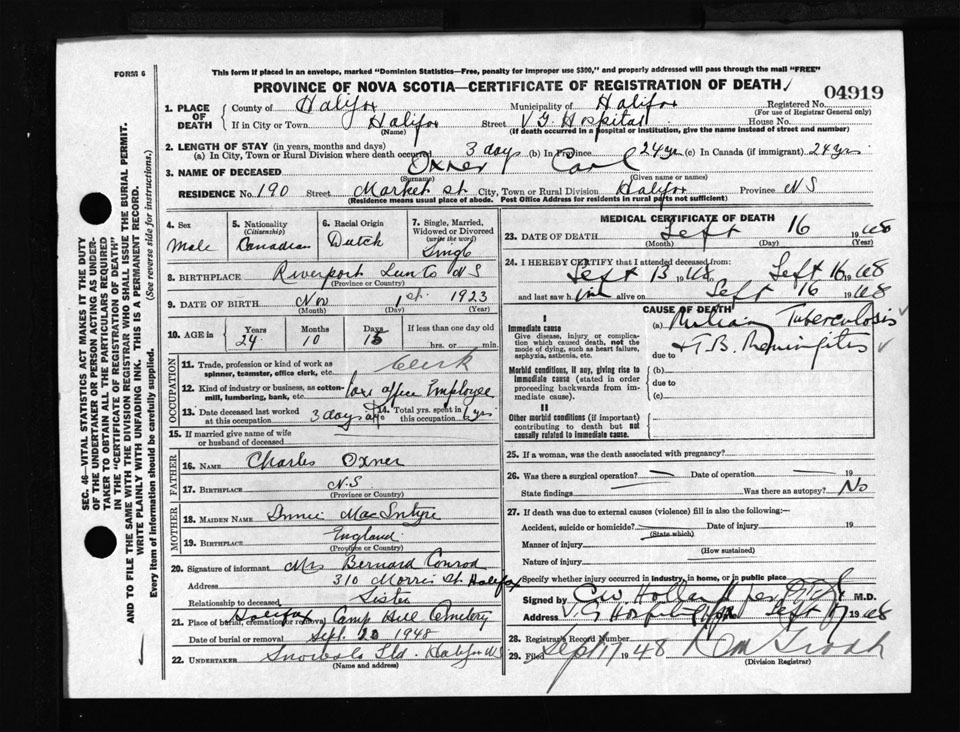 FORM 6
This form if placed in an envelope, marked "Dominion Statistics—Free, penalty for improper use $300," and properly addressed will pass through the mail "FREE"
PROVINCE OF NOVA SCOTIA—CERTIFICATE OF REGISTRATION OF DEATH
04919
1. PLACE OF DEATH
County of Halifax Municipality of Halifax Registered No.
(For use of Registrar General only)
If in City or Town Halifax Street V.G. Hospital House No.
(Name) (If death occurred in a hospital or institution, give the name instead of street and number)
2. LENGTH OF STAY (in years, months and days)
(a) In City, Town or Rural Division where death occurred 3 days (b) In Province 24 yrs (c) In Canada (if immigrant) 24 yrs
3. NAME OF DECEASED Oxner Carl
(Surname) (Given name or names)
RESIDENCE No. 190 Street Market St. City, Town or Rural Division Halifax Province N S
(Residence means usual place of abode. Post Office Address for residents in rural parts not sufficient)
4. Sex Male
5. Nationality (Citizenship) Canadian
6. Racial Origin Dutch
7. Single, Married, Widowed or Divorced (write the word) Single
8. BIRTHPLACE Riverport Lun Co N S
(Province or Country)
9. DATE OF BIRTH Nov 1st. 1923
(Month) (Day) (Year)
10. AGE in Years 24 Months 10 Days 15 If less than one day old hrs. or min.
OCCUPATION
11. Trade, profession or kind of work as spinner, teamster, office clerk, etc. Clerk
12. Kind of industry or business, as cotton-mill, lumbering, bank, etc. Office Employee
13. Date deceased last worked at this occupation 3 days
14. Total yrs. spent in this occupation yrs
15. If married give name of wife or husband of deceased
FATHER
16. NAME Charles Oxner
17. BIRTHPLACE N.S
(Province or Country)
MOTHER
18. MAIDEN NAME Annie MacIntyre
19. BIRTHPLACE England
(Province or Country)
20. Signature of informant Mrs Bernard Conrod
Address 310 Morris St. Halifax
Relationship to deceased Sister
21. Place of burial, cremation or removal Halifax Camp Hill Cemetery
Date of burial or removal Sept. 20 1948
22. UNDERTAKER Snows Ltd. Halifax NS
(Name and address)
MEDICAL CERTIFICATE OF DEATH
23. DATE OF DEATH Sept 16 1948
(Month) (Day) (Year)
24. I HEREBY CERTIFY that I attended deceased from:
Sept 13 1948 Sept 16 1948
and last saw him alive on Sept 16 1948
CAUSE OF DEATH
I
Immediate cause
Give disease, injury or complication which caused death, not the mode of dying, such as heart failure, asphyxia, asthenia, etc.
(a) Miliary Tuberculosis
due to + T.B. Meningitis
Morbid conditions, if any, giving rise to immediate cause (stated in order proceeding backwards from immediate cause).
(b)
due to
(c)
II
Other morbid conditions (if important) contributing to death but not causally related to immediate cause.
25. If a woman, was the death associated with pregnancy?
26. Was there a surgical operation? — Date of operation — 19
State findings Was there an autopsy? No
27. If death was due to external causes (violence) fill in also the following:—
Accident, suicide or homicide? Date of injury 19
(State which)
Manner of injury
(How sustained)
Nature of injury
Specify whether injury occurred in industry, in home, or in public place
Signed by C W Holland M.D.
Address V.G Hospital Sept 17 1948
28. Registrar's Record Number
29. Filed Sept 17 1948
(Division Registrar)
SEC. 46—VITAL STATISTICS ACT MAKES IT THE DUTY
OF THE UNDERTAKER OR PERSON ACTING AS UNDER-
TAKER TO OBTAIN ALL THE PARTICULARS REQUIRED
IN THE "CERTIFICATE OF REGISTRATION OF DEATH"
AND TO FILE THE SAME WITH THE DIVISION REGISTRAR WHO SHALL ISSUE THE BURIAL PERMIT.
WRITE PLAINLY WITH UNFADING INK. THIS IS A PERMANENT RECORD.
Every item of information should be carefully supplied. (See reverse side for instructions.)